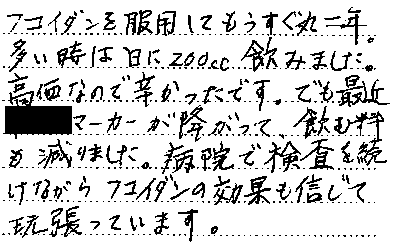 フコイダンを服用してもうすぐ丸二年。
多い時は日に200cc飲みました。
高価なので辛かったです。でも最近
マーカーが降がって、飲む料
も減りました。病院で検査を続
けながらフコイダンの効果も信じて
頑張っています。